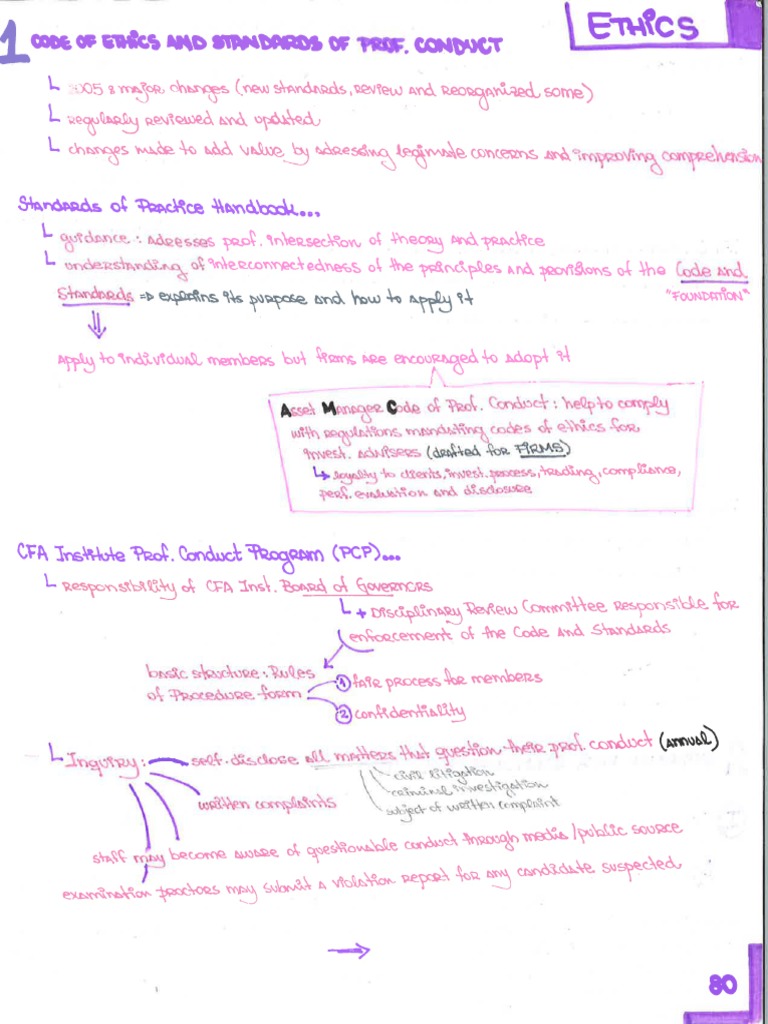 ETHICS
1 CODE OF ETHICS AND STANDARDS OF PROF. CONDUCT
2005: major changes (new standards, review and reorganized some)
regularly reviewed and updated
changes made to add value by adressing legimate concerns and improving comprehension
Standards of Practice Handbook...
guidance: adresses prof. intersection of theory and practice
understanding of interconnectedness of the principles and provisions of the Code and
Standards => explains its purpose and how to apply it
"FOUNDATION"
apply to individual members but firms are encouraged to adopt it
Asset Manager Code of Prof. Conduct: help to comply
with regulations mandating codes of ethics for
invest. advisers (drafted for FIRMS)
loyalty to clients, invest. process, trading, compliance,
perf. evaluation and disclosure
CFA Institute Prof. Conduct Program (PCP)...
Responsibility of CFA Inst. Board of Governors
+ Disciplinary Review Committee responsible for
enforcement of the Code and Standards
basic structure: Rules
of Procedure form
1 fair process for members
2 confidentiality
Inquiry: self. disclose all matters that question their prof. conduct (annual)
civil litigation
criminal investigation
subject of written complaint
written complaints
staff may become aware of questionable conduct through media / public source
examination proctors may submit a violation report for any candidate suspected
80